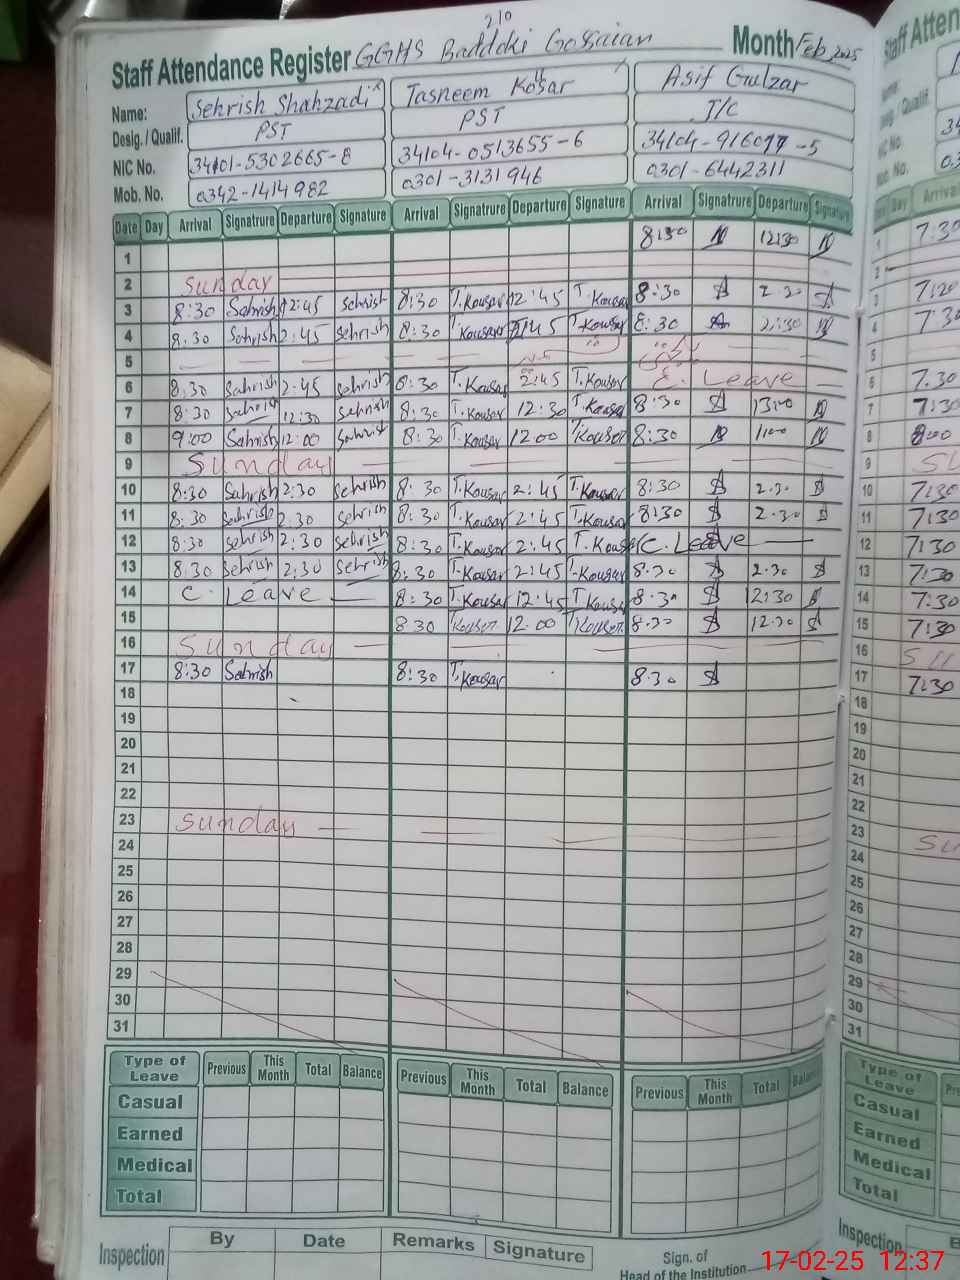 210
Staff Attendance Register GGHS Baddoki Gossaian Month Feb 2025
Name: Sehrish Shahzadi Tasneem Kosar Asif Gulzar
Desig. / Qualif. PST PST J/C
NIC No. 34101-5302665-8 34104-0513655-6 34104-916077-5
Mob. No. 0342-1414982 0301-3131946 0301-6442311
Date Day Arrival Signatrure Departure Signature Arrival Signatrure Departure Signature Arrival Signatrure Departure Signature
1 8:30 12:30
2 Sunday
3 8:30 Sahrish 2:45 Sehrish 8:30 T.Kousar 2:45 T.Kousar 8:30 2.30
4 8:30 Sahrish 2:45 Sehrish 8:30 T.Kousar 2:45 T.Kousar 8:30 2:30
5
6 8:30 Sahrish 2:45 Sehrish 8:30 T.Kousar 2:45 T.Kousar E. Leave
7 8:30 Sahrish 12:30 Sehrish 8:30 T.Kousar 12:30 T.Kousar 8:30
8 9:00 Sahrish 12:00 Sahrish 8:30 T.Kousar 12:00 T.Kousar 8:30 11:00
9 Sunday
10 8:30 Sahrish 2:30 Sehrish 8:30 T.Kousar 2:45 T.Kousar 8:30 2.30
11 8:30 Sahrish 2:30 Sehrish 8:30 T.Kousar 2:45 T.Kousar 8:30 2.30
12 8:30 Sehrish 2:30 Sehrish 8:30 T.Kousar 2:45 T.Kousar C. Leave
13 8:30 Sehrish 2:30 Sehrish 8:30 T.Kousar 2:45 T.Kousar 8.30 2.30
14 C. Leave 8:30 T.Kousar 12:45 T.Kousar 8.30 12:30
15 8:30 Kouser 12:00 T.Kouser 8.30 12.30
16 Sunday
17 8:30 Sahrish 8:30 T.Kousar 8.30
18
19
20
21
22
23 Sunday
24
25
26
27
28
29
30
31
Type of Leave Previous This Month Total Balance Previous This Month Total Balance Previous This Month Total Balance
Casual
Earned
Medical
Total
Inspection By Date Remarks Signature Sign. of Head of the Institution
Staff Atten
Arrival
1 7:30
2
3 7:20
4 7:30
5
6 7.30
7 7:30
8 8:00
9 SU
10 7:30
11 7:30
12 7:30
13 7:30
14 7:30
15 7:30
16
17 7:30
18
19
20
21
22
23 SU
24
25
26
27
28
29
30
31
Type of Leave
Casual
Earned
Medical
Total
Inspection
17-02-25 12:37